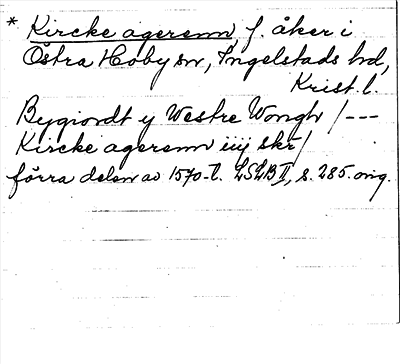 * Kircke agerenn f. åker i
Östra Hoby sn, Ingelstads hd,
Krist. l.
Bygiordt y Westre Wongh /---
Kircke agerenn iiij skr/
förra delen av 1570-t. LSLB II, s. 285. orig.